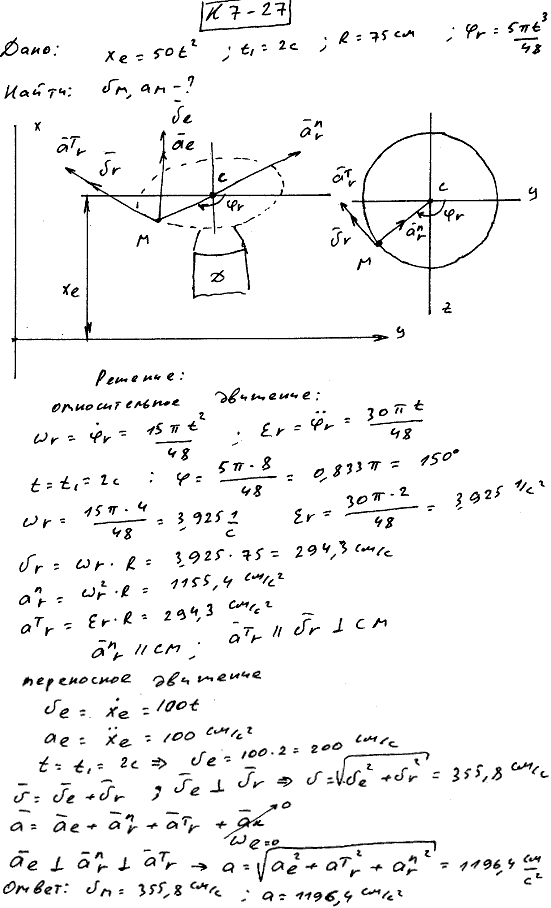 К7-27
Дано: xe = 50t² ; t₁ = 2c ; R = 75 см ; φr = 5πt³/48
Найти: υм, aм - ?
x
ῡe
āe
āτr
ῡr
ānr
C
φr
M
xe
Д
y
āτr
ῡr
C
y
ānr
φr
M
z
Решение:
относительное движение:
ωr = φ̇r = 15πt²/48 ; εr = φ̈r = 30πt/48
t = t₁ = 2c : φ = 5π·8/48 = 0,833π = 150°
ωr = 15π·4/48 = 3,925 1/c εr = 30π·2/48 = 3,925 1/c²
υr = ωr · R = 3,925 · 75 = 294,3 см/c
anr = ωr² · R = 1155,4 см/c²
aτr = εr · R = 294,3 см/c²
ānr // CM ; āτr // ῡr ⊥ CM
переносное движение
υe = ẋe = 100t
ae = ẍe = 100 см/c²
t = t₁ = 2c ⇒ υe = 100·2 = 200 см/c
ῡ = ῡe + ῡr ; ῡe ⊥ ῡr ⇒ υ = √(υe² + υr²) = 355,8 см/c
ā = āe + ānr + āτr + āк → 0
ωe = 0
āe ⊥ ānr ⊥ āτr → a = √(ae² + aτr² + anr²) = 1196,4 см/c²
Ответ: υм = 355,8 см/c ; a = 1196,4 см/c²